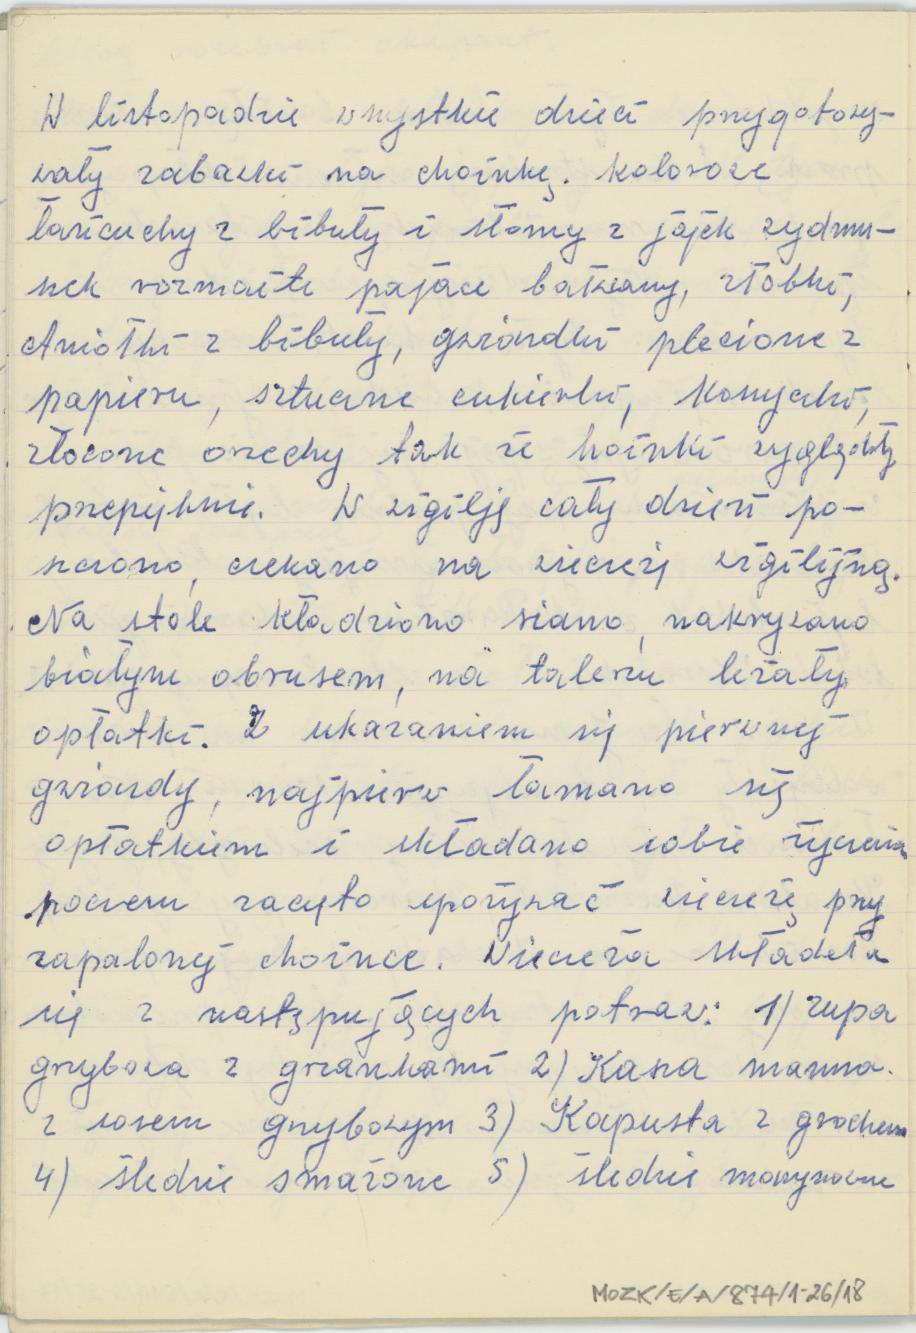 W listopadzie wszystkie dzieci przygotowy-
wały zabawki na choinkę. Kolorowe
łańcuchy z bibuły i słomy z jajek wydmu-
szek rozmaite pajace bałwany, żłobki,
Aniołki z bibuły, gwiazdki plecione z
papieru, sztuczne cukierki, koszyczki,
złocone orzechy tak że hoinki wyglądały
przepięknie. W wigilję cały dzień po-
szczono, czekano na wieczerzę wigilijną.
Na stole kładziono siano, nakrywano
białym obrusem, na talerzu leżały
opłatki. Z ukazaniem się pierwszej
gwiazdy, najpierw łamano się
opłatkiem i składano sobie życzenia
poczem zaczęto spożywać wieczerzę przy
zapalonej choince. Wieczerza składała
się z następujących potraw: 1) zupa
grzybowa z grzankami 2) Kasza manna.
z sosem grzybowym 3) Kapusta z grochem
4) śledzie smażone 5) śledzie marynowane
MOZK/E/A/874/1-26/18